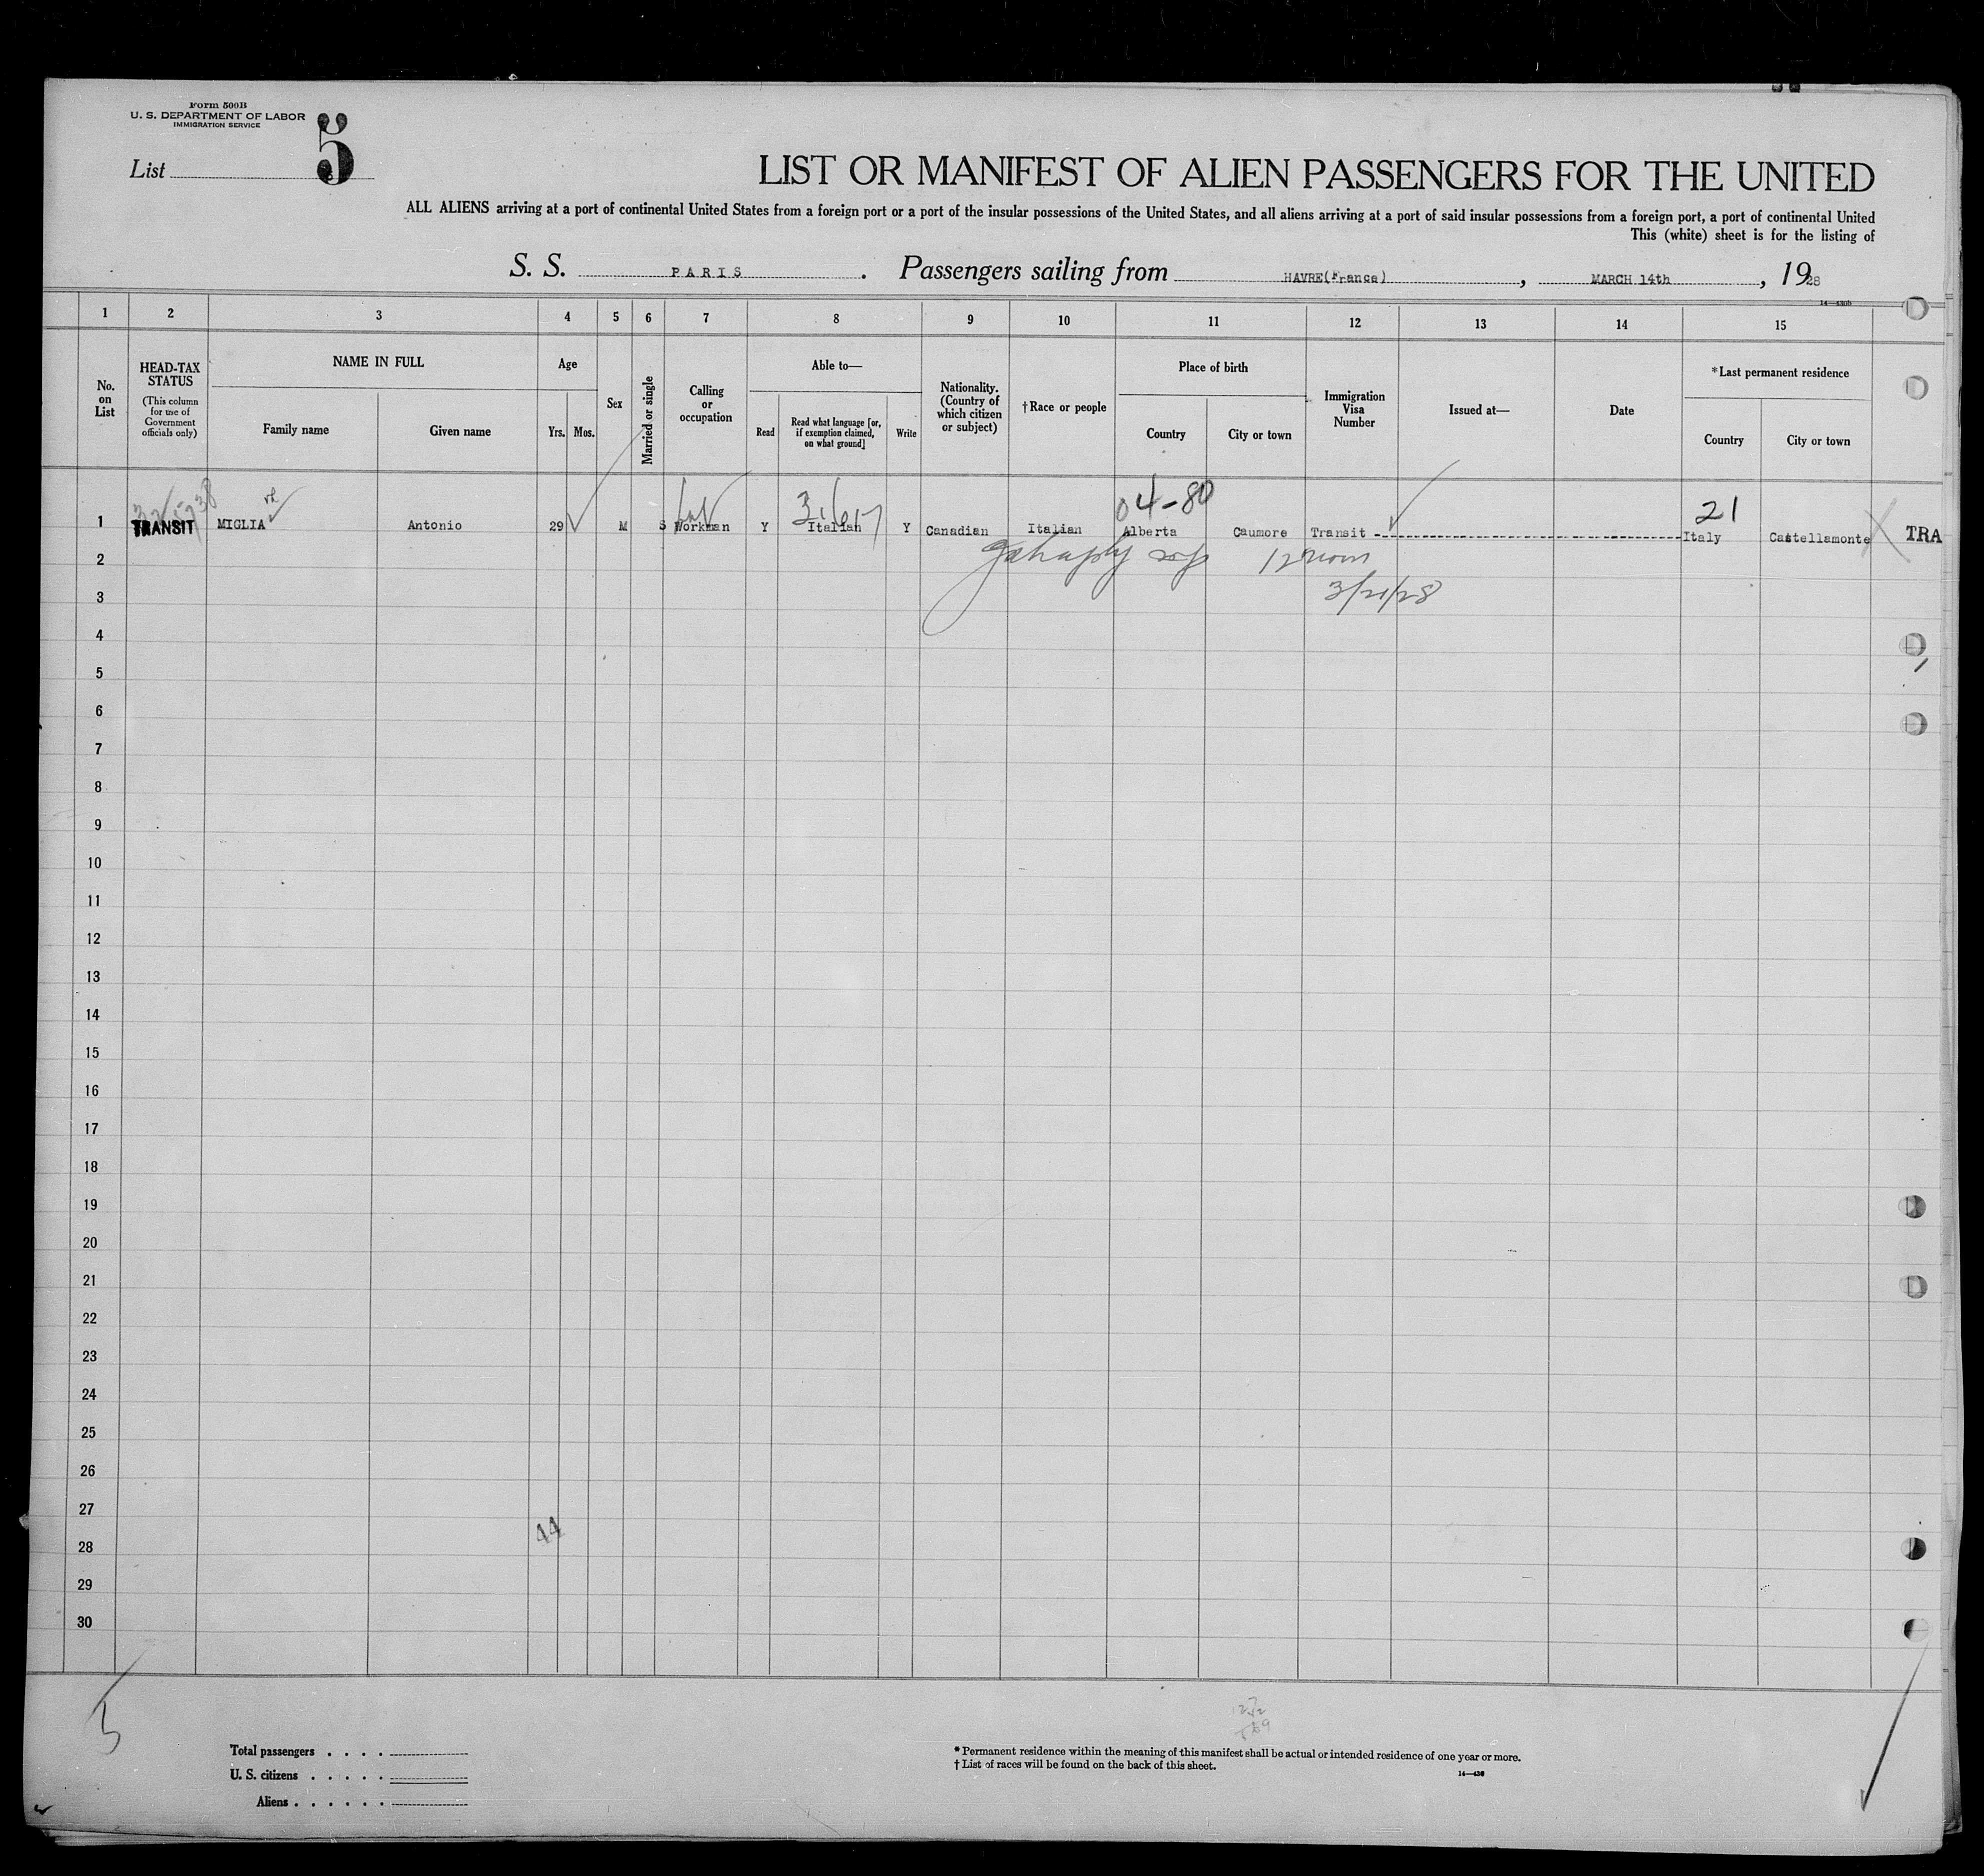 Form 500B
U. S. DEPARTMENT OF LABOR
IMMIGRATION SERVICE
List 5
LIST OR MANIFEST OF ALIEN PASSENGERS FOR THE UNITED
ALL ALIENS arriving at a port of continental United States from a foreign port or a port of the insular possessions of the United States, and all aliens arriving at a port of said insular possessions from a foreign port, a port of continental United
This (white) sheet is for the listing of
S. S. PARIS . Passengers sailing from HAVRE(France) , MARCH 14th , 1928
1 2 3 4 5 6 7 8 9 10 11 12 13 14 15
No. on List
HEAD-TAX STATUS
(This column for use of Government officials only)
NAME IN FULL
Family name
Given name
Age
Yrs.
Mos.
Sex
Married or single
Calling or occupation
Able to—
Read
Read what language [or, if exemption claimed, on what ground]
Write
Nationality. (Country of which citizen or subject)
†Race or people
Place of birth
Country
City or town
Immigration Visa Number
Issued at—
Date
*Last permanent residence
Country
City or town
04-80
21
1 TRANSIT MIGLIA Antonio 29 M S Workman Y Italian Y Canadian Italian Alberta Caumore Transit Italy Castellamonte TRA
2
12 noon
3/21/28
3
4
5
6
7
8
9
10
11
12
13
14
15
16
17
18
19
20
21
22
23
24
25
26
27
44
28
29
30
5
Total passengers . . . .
U. S. citizens . . . . .
Aliens . . . . . .
* Permanent residence within the meaning of this manifest shall be actual or intended residence of one year or more.
† List of races will be found on the back of this sheet.